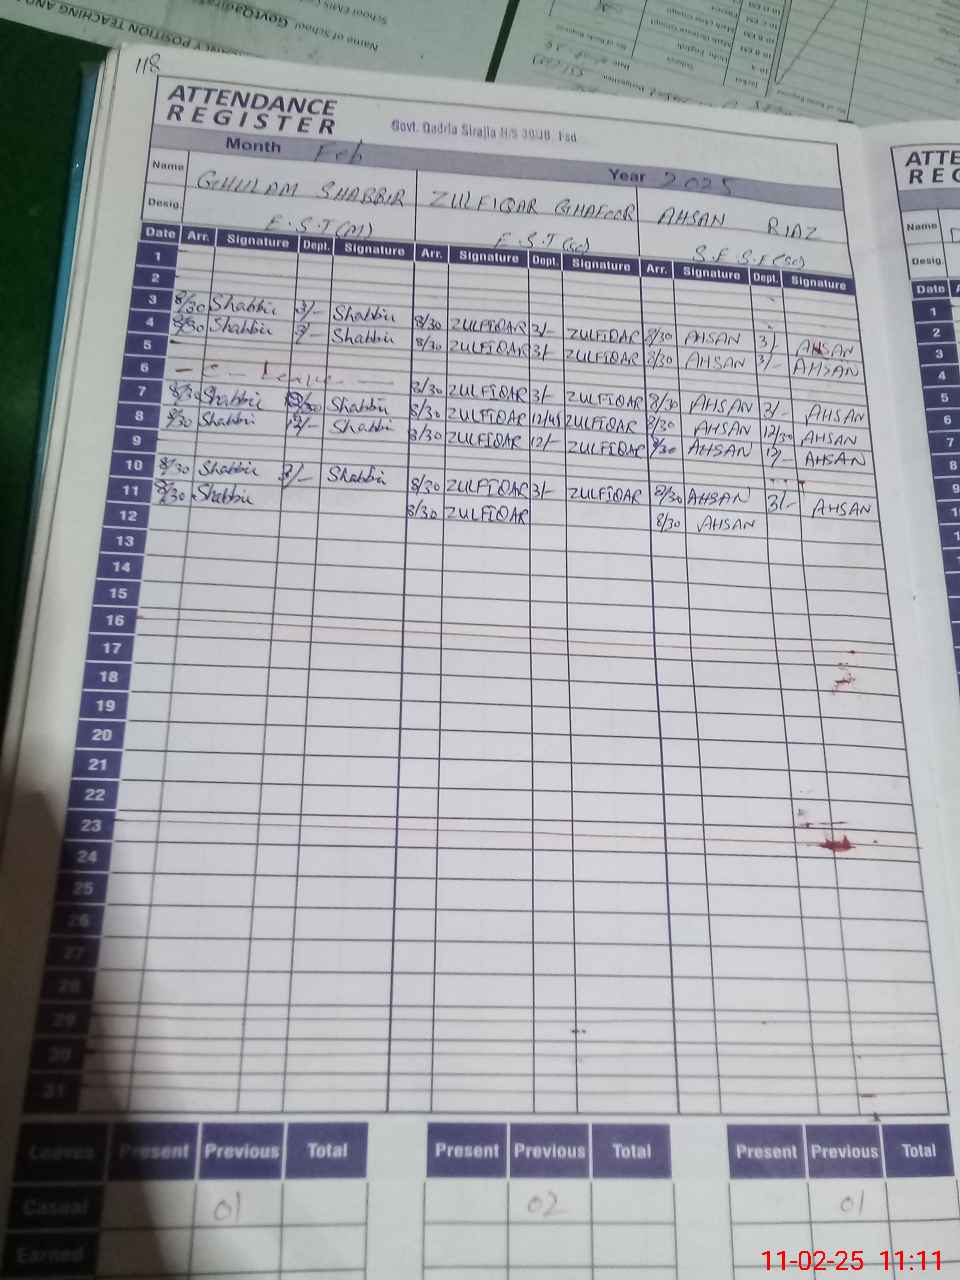 118
ATTENDANCE
REGISTER
Govt. Qadria Sirajia H/S
Month Feb
Year 2025
Name GHULAM SHABBIR ZULFIQAR GHAFOOR AHSAN RIAZ
Desig. E.S.T(M) E.S.T(SC) S.E.S.E(SC)
Date Arr. Signature Dept. Signature Arr. Signature Dept. Signature Arr. Signature Dept. Signature
1
2
3 8/30 Shabbir 3/- Shabbir 8/30 ZULFIQAR 3/- ZULFIQAR 8/30 AHSAN 3/- AHSAN
4 8/30 Shabbir 3/- Shabbir 8/30 ZULFIQAR 3/- ZULFIQAR 8/30 AHSAN 3/- AHSAN
5
6 Leave 8/30 ZULFIQAR 3/- ZULFIQAR 8/30 AHSAN 3/- AHSAN
7 8/30 Shabbir Shabbir 8/30 ZULFIQAR 12/45 ZULFIQAR 8/30 AHSAN 12/30 AHSAN
8 8/30 Shabbir 12/- Shabbir 8/30 ZULFIQAR 12/- ZULFIQAR 8/30 AHSAN 12/- AHSAN
9
10 8/30 Shabbir 3/- Shabbir 8/30 ZULFIQAR 3/- ZULFIQAR 8/30 AHSAN 3/- AHSAN
11 8/30 Shabbir 8/30 ZULFIQAR 8/30 AHSAN
12
13
14
15
16
17
18
19
20
21
22
23
24
25
26
27
28
29
30
31
Leaves Present Previous Total Present Previous Total Present Previous Total
Casual 01 02 01
Earned
Name
Desig.
Date
1
2
3
4
5
6
7
8
9
11-02-25 11:11